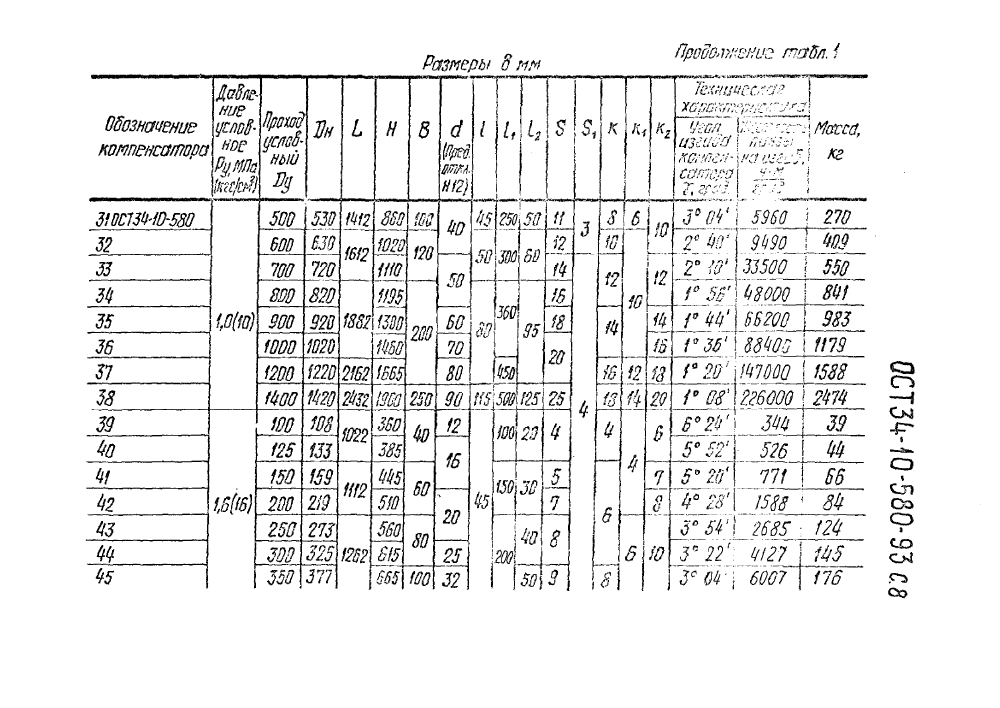 Размеры в мм
Продолжение табл. 1
Обозначение компенсатора | Давление условное Ру, МПа (кгс/см²) | Проход условный Dу | Dн | L | H | B | d (Пред. откл. H12) | l | l₁ | l₂ | S | S₁ | K | K₁ | K₂ | Техническая характеристика: Угол изгиба компенсатора, град. | на изгиб, | Масса, кг
31 ОСТ34-10-580 | 1,0(10) | 500 | 530 | 1412 | 860 | 100 | 40 | 45 | 250 | 50 | 11 | 3 | 8 | 6 | 10 | 3° 04' | 5960 | 270
32 | 600 | 630 | 1612 | 1020 | 120 | 50 | 300 | 60 | 12 | 10 | 2° 40' | 9490 | 409
33 | 700 | 720 | 1110 | 50 | 14 | 4 | 12 | 10 | 12 | 2° 10' | 33500 | 550
34 | 800 | 820 | 1882 | 1195 | 200 | 80 | 360 | 95 | 16 | 1° 56' | 48000 | 841
35 | 900 | 920 | 1300 | 60 | 18 | 14 | 14 | 1° 44' | 66200 | 983
36 | 1000 | 1020 | 1460 | 70 | 20 | 16 | 1° 36' | 88400 | 1179
37 | 1200 | 1220 | 2162 | 1665 | 80 | 450 | 16 | 12 | 18 | 1° 20' | 147000 | 1588
38 | 1400 | 1420 | 2432 | 1900 | 250 | 90 | 115 | 500 | 125 | 25 | 18 | 14 | 20 | 1° 08' | 226000 | 2474
39 | 1,6(16) | 100 | 108 | 1022 | 360 | 40 | 12 | 45 | 100 | 20 | 4 | 4 | 4 | 6 | 6° 24' | 344 | 39
40 | 125 | 133 | 385 | 16 | 5° 52' | 526 | 44
41 | 150 | 159 | 1112 | 445 | 60 | 150 | 30 | 5 | 6 | 7 | 5° 20' | 771 | 66
42 | 200 | 219 | 510 | 20 | 7 | 8 | 4° 28' | 1588 | 84
43 | 250 | 273 | 1262 | 560 | 80 | 200 | 40 | 8 | 6 | 10 | 3° 54' | 2685 | 124
44 | 300 | 325 | 615 | 25 | 3° 22' | 4127 | 145
45 | 350 | 377 | 665 | 100 | 32 | 50 | 9 | 8 | 3° 04' | 6007 | 176
ОСТ34-10-580-93 с8